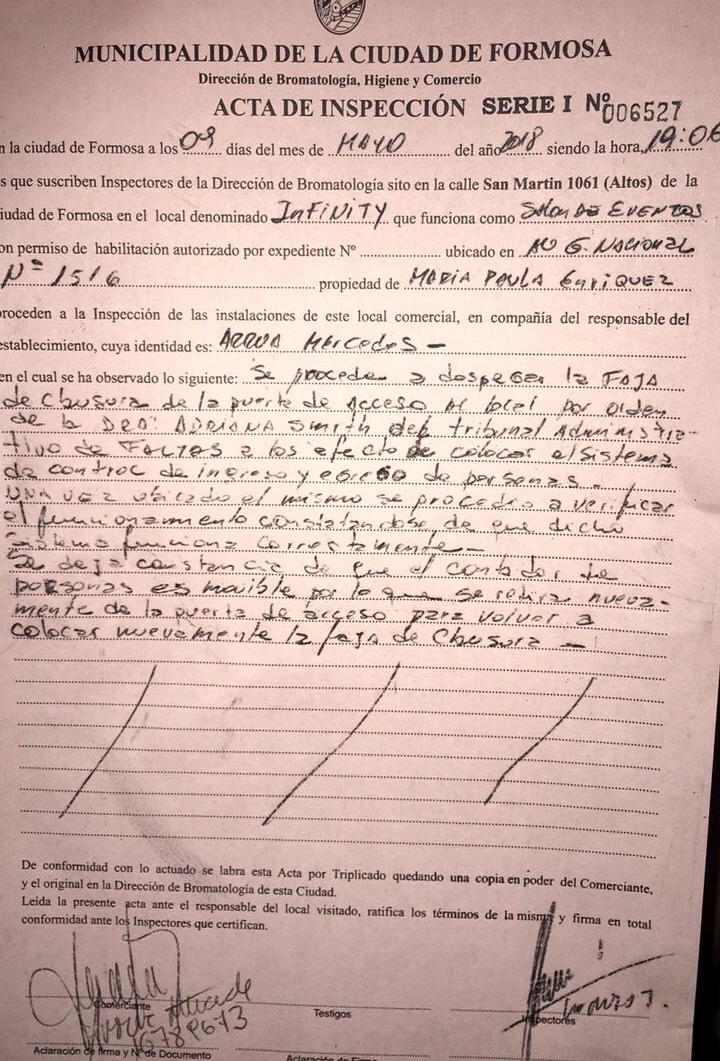 MUNICIPALIDAD DE LA CIUDAD DE FORMOSA
Dirección de Bromatología, Higiene y Comercio
ACTA DE INSPECCIÓN SERIE I Nº 006527
n la ciudad de Formosa a los 09 días del mes de MAYO del año 2018 siendo la hora, 19:06
s que suscriben Inspectores de la Dirección de Bromatología sito en la calle San Martin 1061 (Altos) de la
iudad de Formosa en el local denominado INFINITY que funciona como SALON DE EVENTOS
on permiso de habilitación autorizado por expediente Nº ubicado en AV G. NACIONAL
Nº 1516 propiedad de MARIA PAULA ENRIQUEZ
proceden a la Inspección de las instalaciones de este local comercial, en compañía del responsable del
establecimiento, cuya identidad es: Mercedes -
en el cual se ha observado lo siguiente: Se procede a despegar la FAJA
de clausura de la puerta de acceso al local por orden
de la DRA. ADRIANA Smith del tribunal Administra-
tivo de FALTAS a los efecto de colocar el sistema
de control de ingreso y egreso de personas.
UNA vez ubicado el mismo se procedio a verificar
el funcionamiento constatandose de que dicho
sistema funciona correctamente -
Se deja constancia de que el contador de
personas es movible por lo que se retira nueva-
mente de la puerta de acceso para volver a
colocar nuevamente la faja de clausura -
De conformidad con lo actuado se labra esta Acta por Triplicado quedando una copia en poder del Comerciante,
y el original en la Dirección de Bromatología de esta Ciudad.
Leída la presente acta ante el responsable del local visitado, ratifica los términos de la misma y firma en total
conformidad ante los Inspectores que certifican.
Comerciante
Testigos
Inspectores
16789673
Aclaración de firma y Nº de Documento
Aclaración de Firma